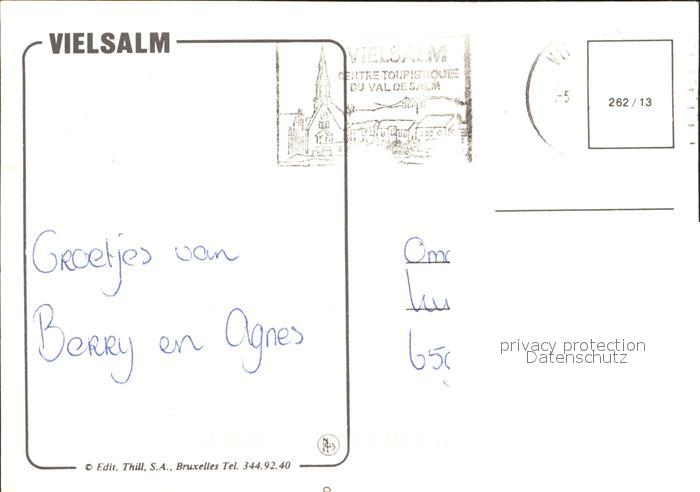 VIELSALM
VIELSALM
CENTRE TOURISTIQUE
DU VAL DE SALM
5
262 / 13
Groetjes van
Berry en Agnes
privacy protection
Datenschutz
© Edit. Thill, S.A., Bruxelles Tel. 344.92.40